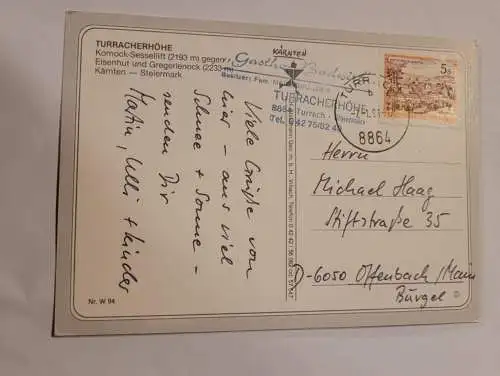 TURRACHERHÖHE
Kornock-Sessellift (2193 m) gegen
Eisenhut und Gregerlenock (2233 m)
Kärnten — Steiermark
Viele Grüße von
hier – aus viel
Schnee + Sonne –
senden Dir
Martin, Ulli + Kinder
Nr. W 94
KÄRNTEN
Gasthof
Besitzer: Fam.
TURRACHERHÖHE
8864 Turrach
Tel. 0 42 75/82 49
8864
5 S
Herrn
Michael Haag
Stiftstraße 35
D-6050 Offenbach/Main
Bürgel